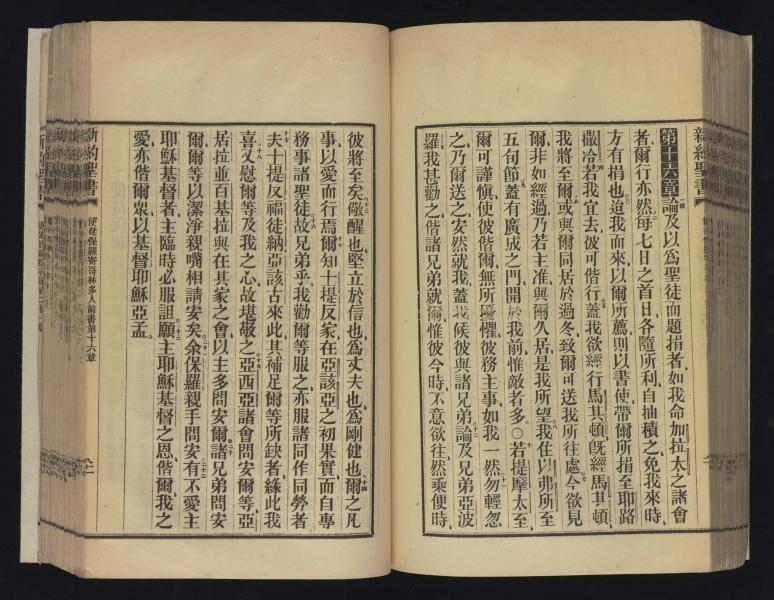 新約聖書
第十六章論及以爲聖徒而題捐者如我命加拉太之諸會
者爾行亦然每七日之首日各隨所利自抽積之免我來時
方有捐也迨我而來以爾所薦則以書使帶爾所捐至耶路
撒冷若我宜去彼可偕行蓋我欲經行馬其頓旣經馬其頓
我將至爾或與爾同居於過冬致爾可送我所往處今欲見
爾非如經過乃若主准與爾久居是我所望我住以弗所至
五旬節蓋有廣成之門開於我前惟敵者多○若提摩太至
爾可謹愼使彼偕爾無所憂懼彼務主事如我一然勿輕忽
之乃爾送之安然就我蓋我候彼與諸兄弟論及兄弟亞波
羅我甚勸之偕諸兄弟就爾惟彼今時不意欲往然乘便時
彼將至矣儆醒也堅立於信也爲丈夫也爲剛健也爾之凡
事以愛而行焉爾知士提反家在亞該亞之初果實而自專
務事諸聖徒故兄弟乎我勸爾等服之亦服諸同作同勞者
夫士提反福徒納亞該古來此其補足爾等所缺者緣此我
喜又慰爾等及我之心故堪敬之亞西亞諸會問安爾等亞
居拉並百基拉與在其家之會以主多問安爾諸兄弟問安
爾爾等以潔淨親嘴相請安矣余保羅親手問安有不愛主
耶穌基督者主臨時必服詛願主耶穌基督之恩偕爾我之
愛亦偕爾衆以基督耶穌亞孟
新約聖書
使徒保羅寄哥林多人前書第十六章